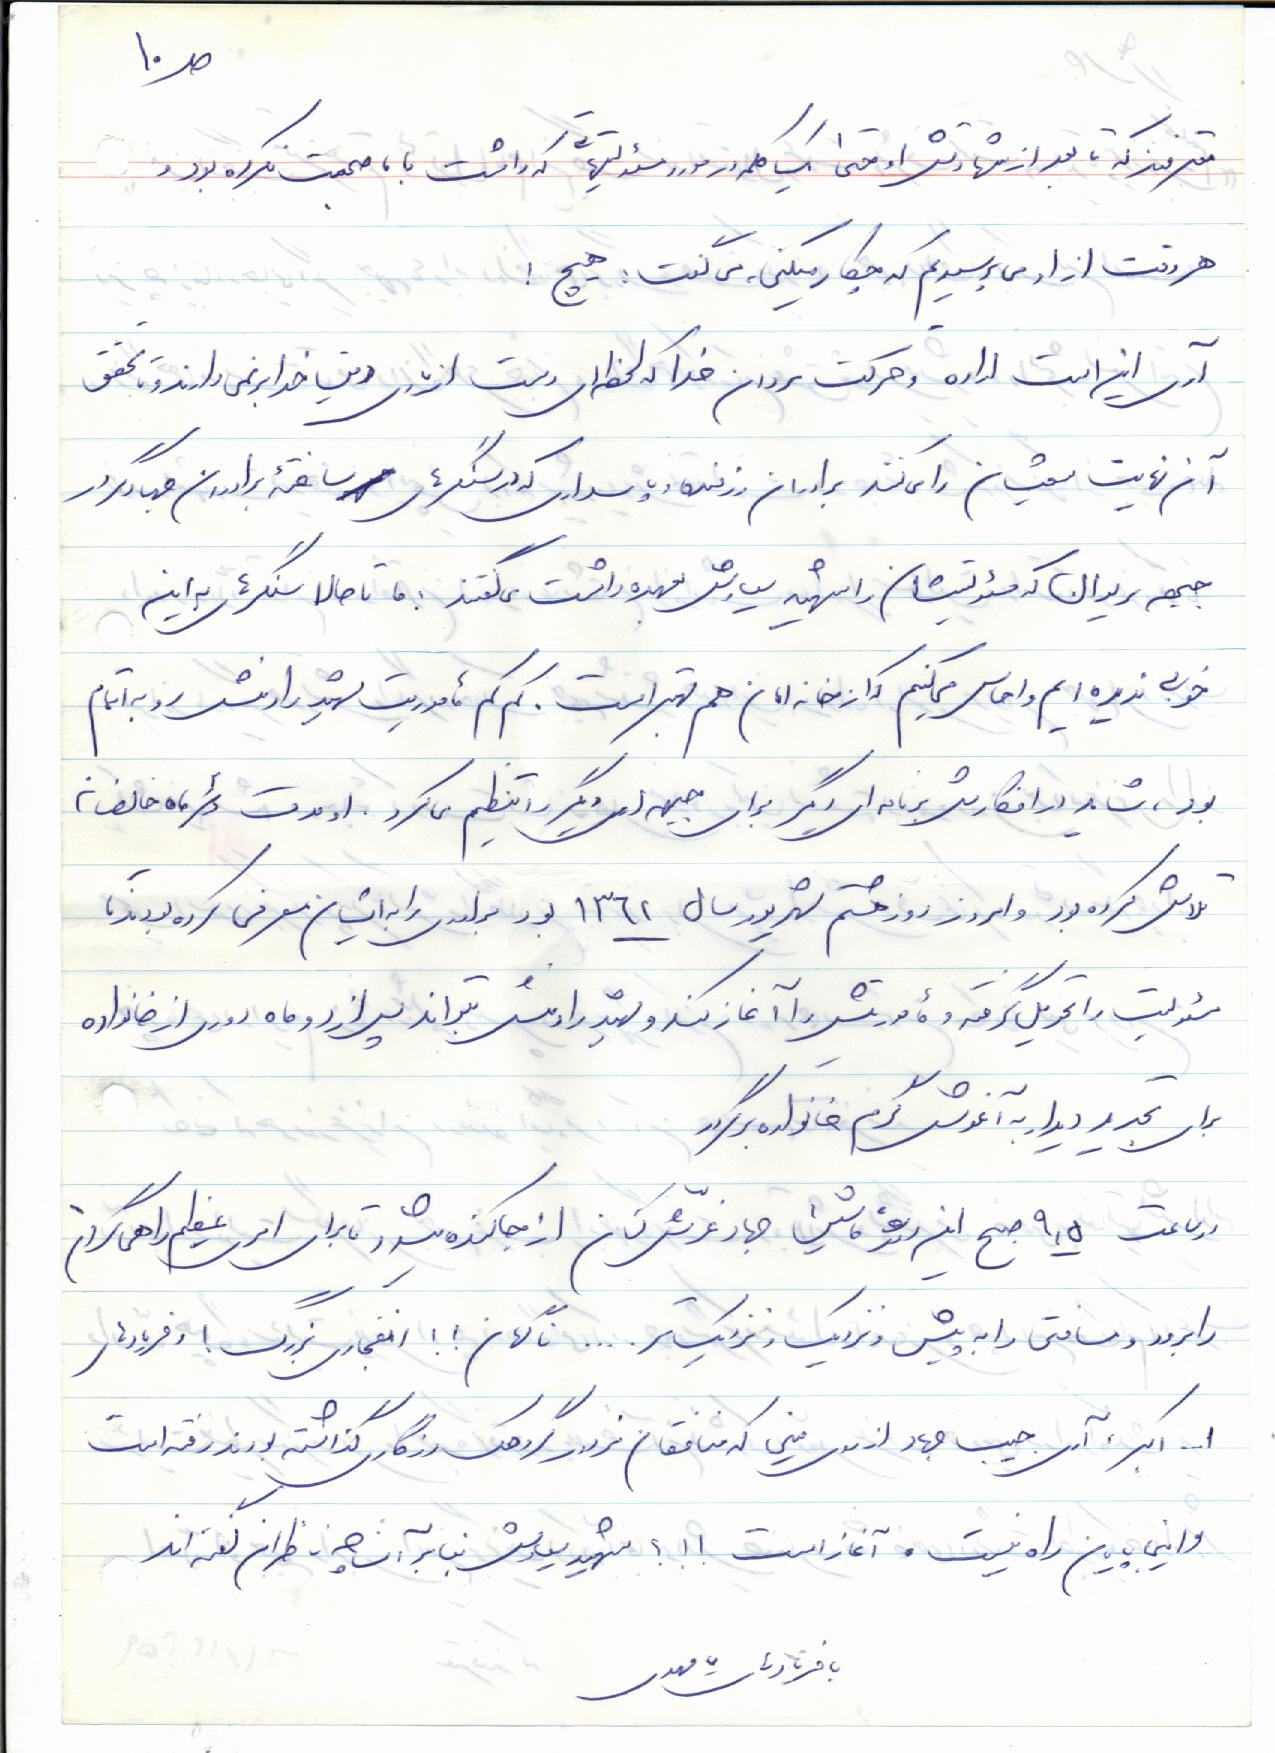 ص ۱۰
معترفند که تا بعد از شهادتش او حتی یک کلمه در مورد مسئولیتهائی که داشت با ما صحبت نکرده بود و
هر وقت از او می پرسیدیم که چکار میکنی، می گفت: هیچ!
آری این است اراده و حرکت مردان خدا که لحظه ای دست از یاری دین خدا بر نمی دارند و تا تحقق
آن نهایت سعیشان را می کنند برادران رزمنده و پاسداری که در سنگرهای ساختهٔ برادران جهادگر در
جبهه مریوان که مسئولیتشان را شهید سیاوش بعهده داشت می گفتند: ما تا حالا سنگرهای به این
خوبی ندیده ایم و احساس میکنیم که از خانه امان هم بهتر است. کم کم مأموریت شهید رادمنش رو به اتمام
بود، شاید در افکارش برنامه ای دیگر برای جبهه ای دیگر را تنظیم می کرد. او مدت ماه خالصانه
تلاش کرده بود و امروز روز هشتم شهریور سال ۱۳۶۱ بود برادری را به ایشان معرفی کرده بودند تا
مسئولیت را تحویل گرفته و مأموریتش را آغاز کند و شهید رادمنش بتواند پس از دو ماه دوری از خانواده
برای تجدید دیدار به آغوش گرم خانواده برگردد
در ساعت ۹٫۵ صبح این روز ماشین جهاد غرّش کنان از جا کنده میشود تا برای امری عظیم راهی گران
را برود و مسافتی را به پیش و نزدیک و نزدیکتر .... ناگهان !! انفجاری بزرگ ! و فریادهای
ا... اکبر، آری جیپ جهاد از روی مینی که منافقان مزدور گروهک رزگاری گذاشته بودند رفته است
و این پایان راه نیست. آغاز است !!! شهید سیاوش بنا بر آنچه ناظران گفته اند
با فریادهای یا مهدی